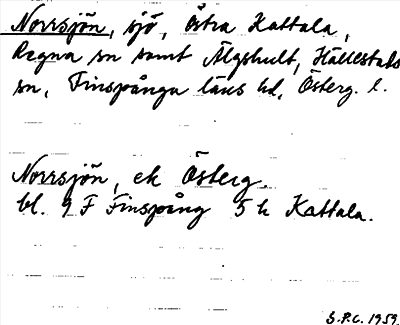 Norrsjön, sjö, Östra Kattala,
Regna sn samt Älgshult, Hällestads
sn, Finspånga läns hd, Österg. l.
Norrsjön, ek Österg.
bl. 9 F Finspång 5 h Kattala.
S.P.C. 1959.